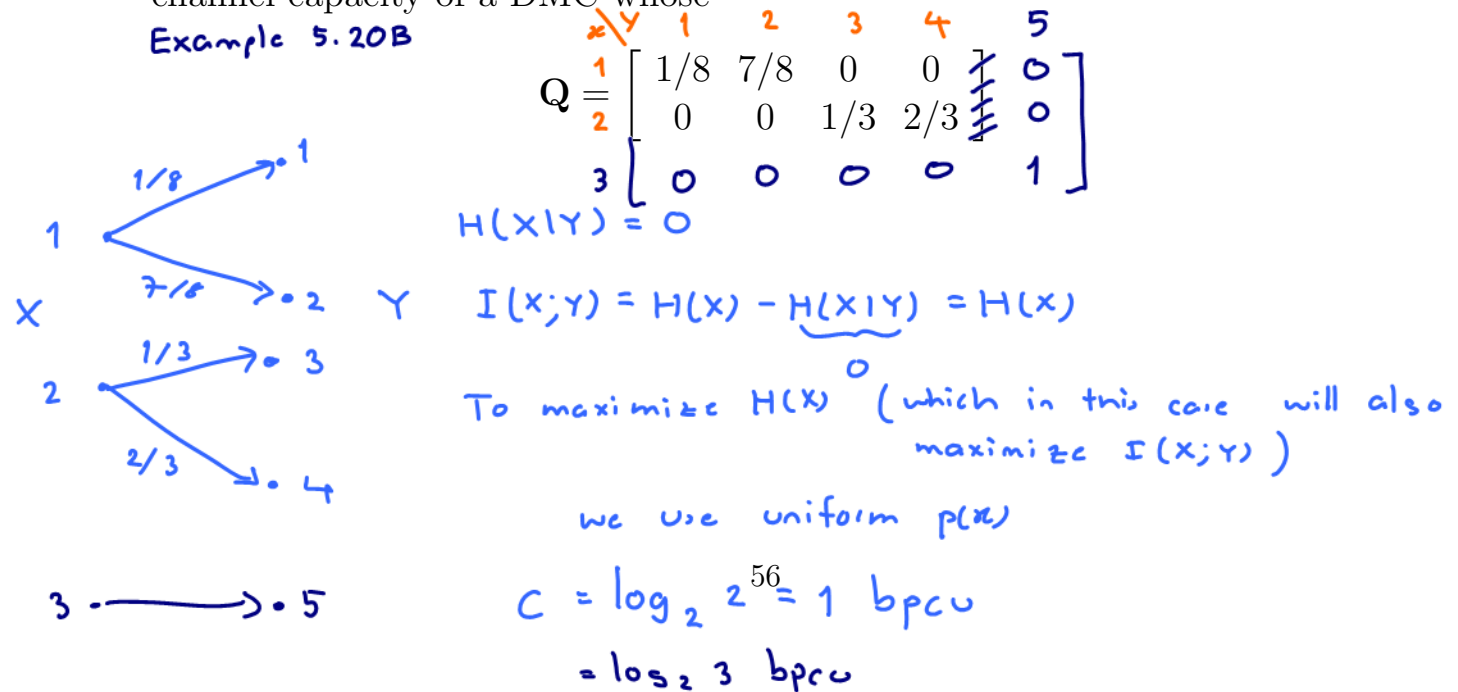 channel capacity of a DMC whose
Example 5.20B
x\Y 1 2 3 4 5
Q = 1 [ 1/8 7/8 0 0 ] 0 ]
2 [ 0 0 1/3 2/3 ] 0
3 [ 0 0 0 0 1 ]
1/8 1
1
7/8 2
X Y
1/3 3
2
2/3 4
3 5
H(X|Y) = 0
I(X;Y) = H(X) - H(X|Y) = H(X)
0
To maximize H(X) (which in this case will also
maximize I(X;Y))
we use uniform p(x)
56
C = log₂ 2 = 1 bpcu
= log₂ 3 bpcu